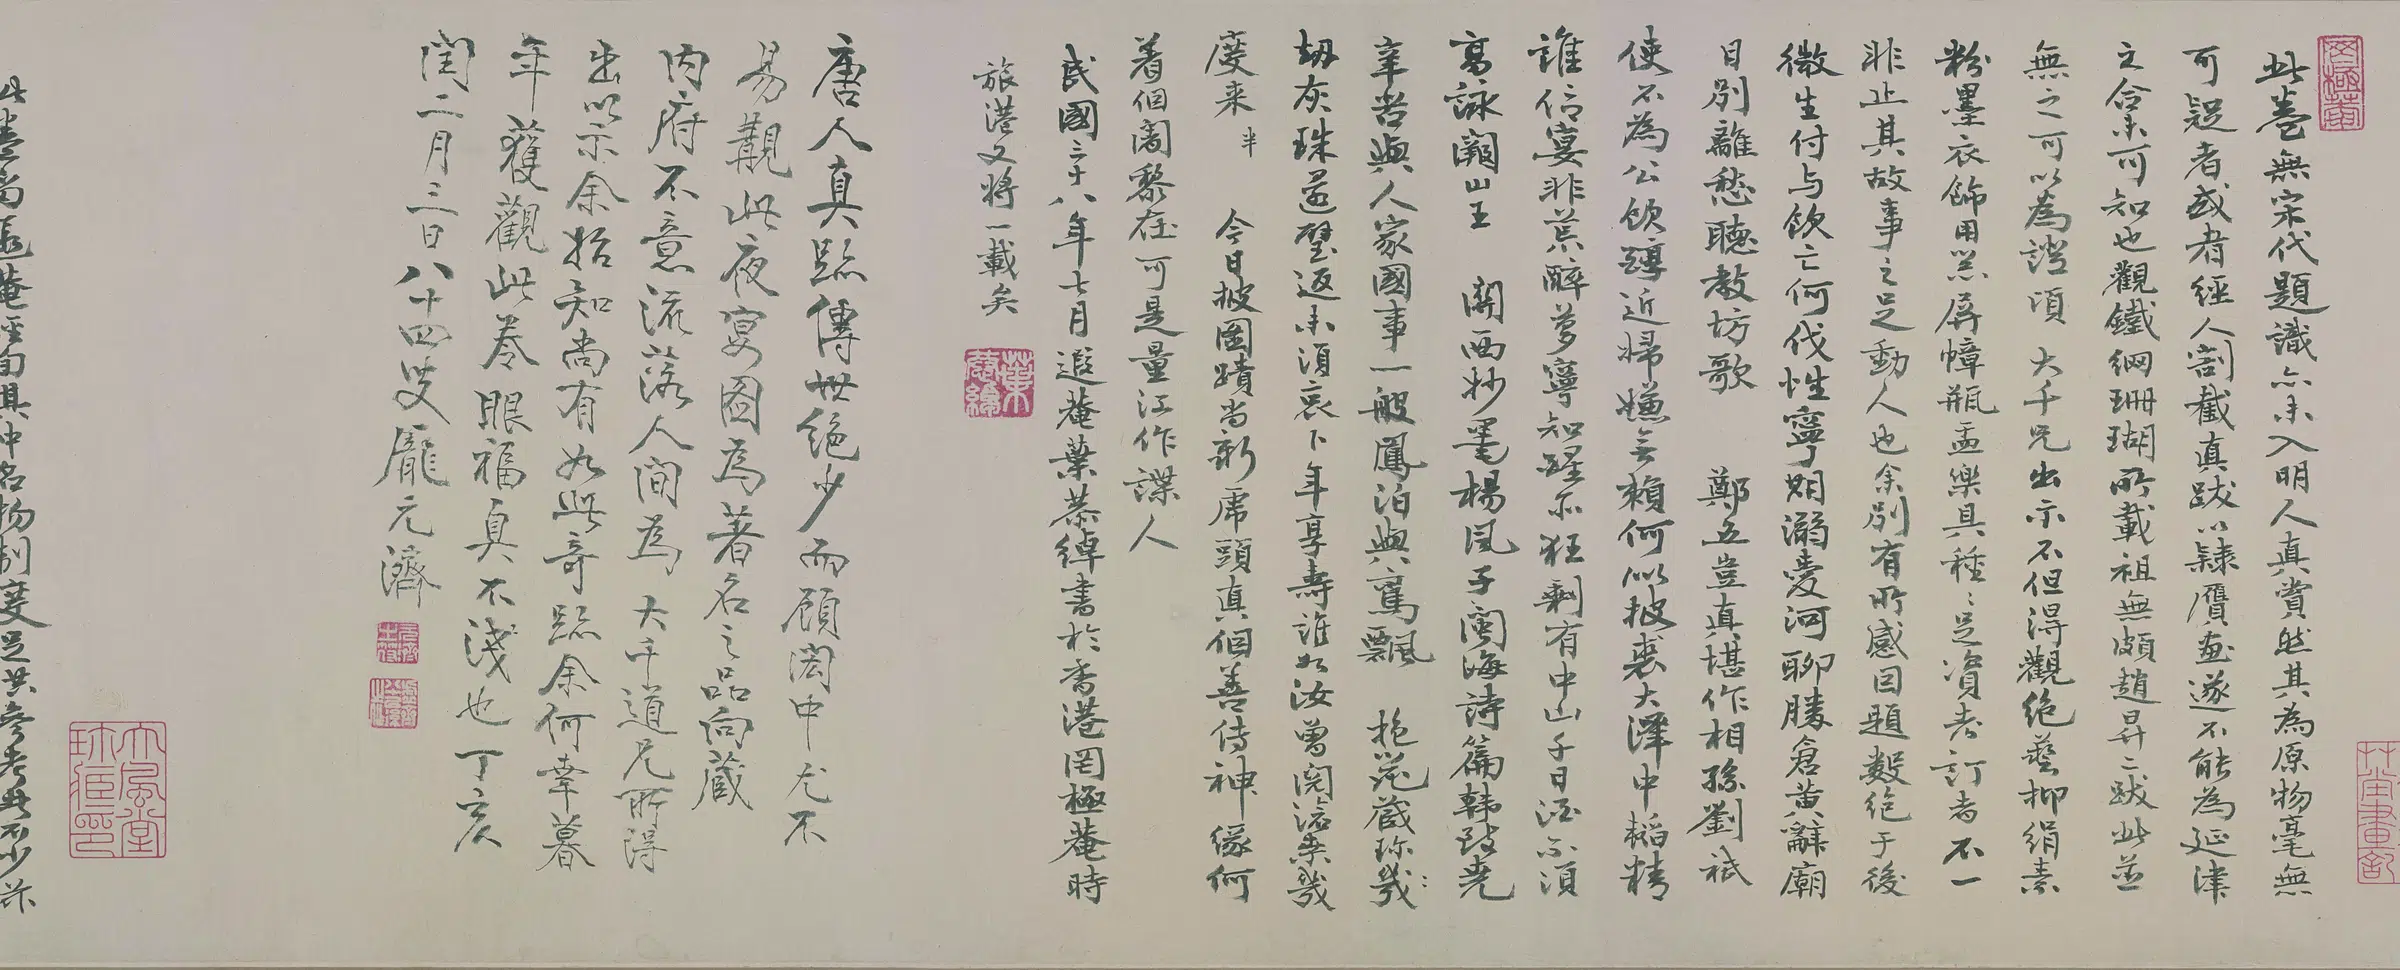 此卷無宋代題識亦未入明人真賞然其為原物毫無
可疑者或者經人割截真跋以隸贋畫遂不能為延津
之合未可知也觀鐵網珊瑚所載祖無頗趙昇二跋此並
無之可以為證頃 大千兄出示不但得觀絕藝抑絹素
粉墨衣飾用器屏幛瓶盂樂具種種足資考訂者不一
非止其故事之足動人也余別有所感因題數絕于後
微生付与飲亡何伐性寧期溺愛河聊勝倉黃辭廟
日別離愁聽教坊歌 鄭五豈真堪作相孫劉祇
使不為公飲醇近婦嫌無賴何似披裘大澤中韜精
誰信宴非荒醉夢寧知醒亦狂剩有中山千日酒不須
高詠灞山王 關西抄墨楊風子閩海詩篇韓致堯
辛苦與人家國事一般鳳泊與鸞飄 抱器藏珍幾
劫灰珠還璧返未須哀卞年享壽誰如汝曾閱滄桑幾
度來半 今日披圖蹟尚新席頭真個善傳神緣何
着個闍黎在可是量江作諜人
民國三十八年七月遐菴葉恭綽書於香港罔極菴時
旅港又將一載矣
葉恭綽
唐人真跡傳世絕少而顧閎中尤不
易覯此夜宴圖為著名之品向藏
內府不意流落人間為 大千道兄所得
出以示余始知尚有如此奇跡余何幸暮
年獲觀此卷眼福真不淺也丁亥
閏二月三日八十四叟龐元濟
大風堂珍藏印
此卷為遐菴經自其中名物制度足供參考者不少茲